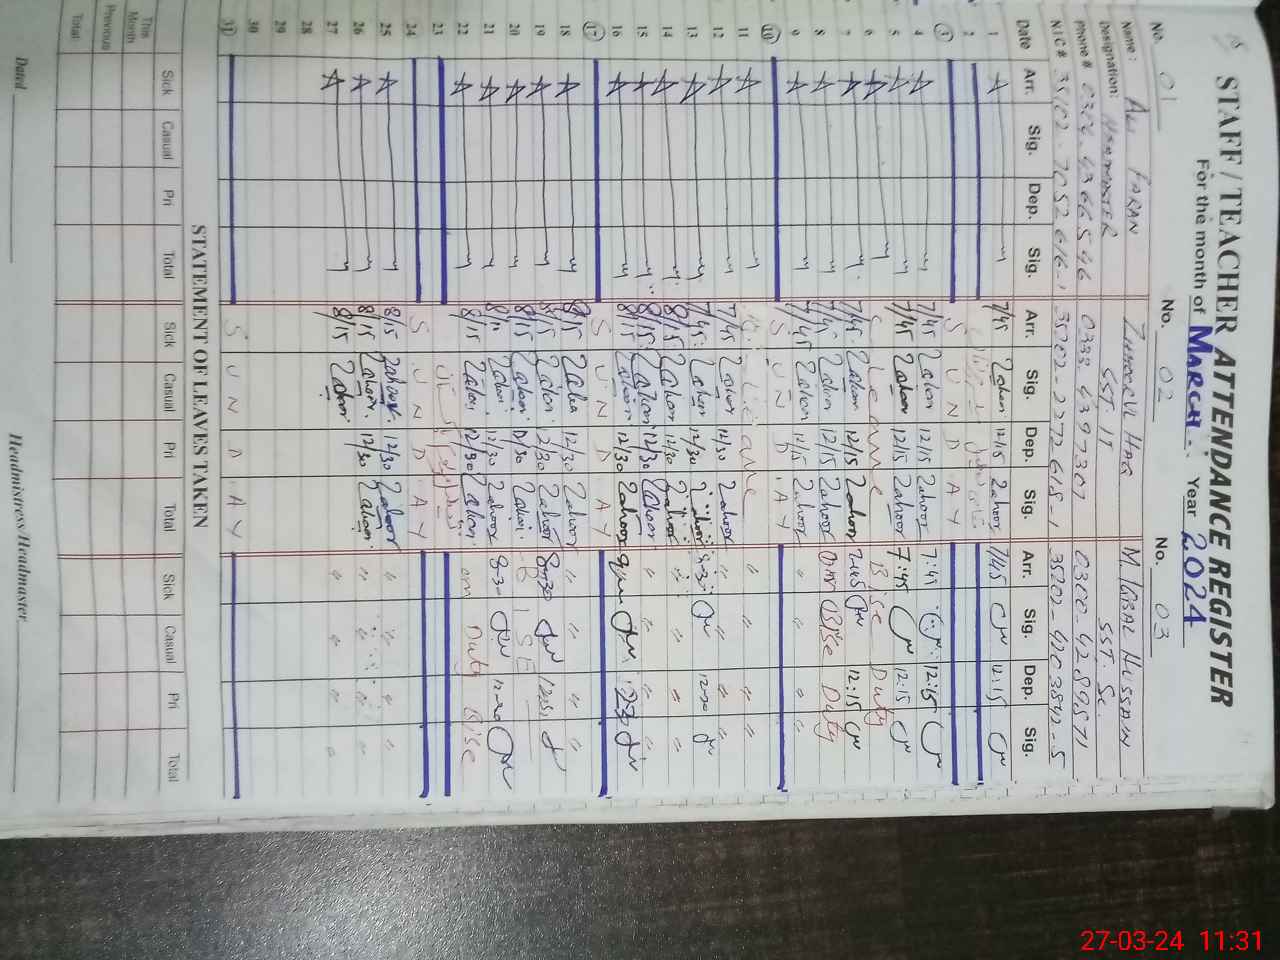 STAFF / TEACHER ATTENDANCE REGISTER
For the month of MARCH Year 2024
No. 01 No. 02 No. 03
Name: ALI FARAN ZAHOOR UL HAQ M. IQBAL HUSSAIN
Designation: HEADMASTER SST. IT SST. Sc.
Phone # 0324-4366546 0333 4397307 0300-4289571
NIC# 35202-2772618-1
Date Arr. Sig. Dep. Sig. Arr. Sig. Dep. Sig. Arr. Sig. Dep. Sig.
1 A 7/45 Zahoor 12/15 Zahoor 7/45 12:15
2
3 SUNDAY
4 A 7/45 Zahoor 12/15 Zahoor 7:41 12:15
5 A 7/45 Zahoor 12/15 Zahoor 7:45 12:15
6 A Leave Bise Duty
7 A 7/45 Zahoor 12/15 Zahoor 7:45 12:15
8 A 7/45 Zahoor 12/15 Zahoor on Bise Duty
9 A 7/45 Zahoor 12/15 Zahoor " "
10 SUNDAY
11 A Leave " "
12 A 7/45 Zahoor 12/30 Zahoor " "
13 A 7/45 Zahoor 12/30 Zahoor
14 A 8/15 Zahoor 12/30 Zahoor " "
15 A 8/15 Zahoor 12/30 Zahoor " "
16 A 8/15 Zahoor 12/30 Zahoor
17 SUNDAY
18 A 8/15 Zahoor 12/30 Zahoor " "
19 A 8/15 Zahoor 12/30 Zahoor 8:30
20 A 8/15 Zahoor 12/30 Zahoor BISE
21 A 8/15 Zahoor 12/30 Zahoor
22 A 8/15 Zahoor 12/30 Zahoor on Duty Bise
23
24 SUNDAY
25 A 8/15 Zahoor 12/30 Zahoor " "
26 A 8/15 Zahoor 12/30 Zahoor " "
27 A 8/15 Zahoor " "
28
29
30
31 SUNDAY
STATEMENT OF LEAVES TAKEN
Sick Casual Pri Total Sick Casual Pri Total Sick Casual Pri Total
This Month
Previous
Total
Dated Headmistress/Headmaster
27-03-24 11:31